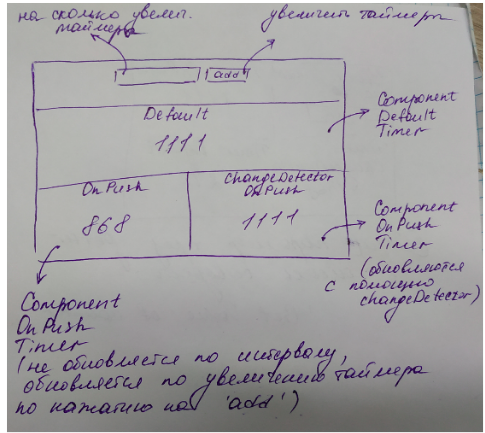 на сколько увелич.
таймера
увеличить таймера
add
Default
1111
Component
Default
Timer
OnPush
868
changeDetector
OnPush
1111
Component
OnPush
Timer
(обновляются
с помощью
changeDetector)
Component
OnPush
Timer
(не обновляется по интервалу,
обновляется по увеличению таймера
по нажатию на 'add')